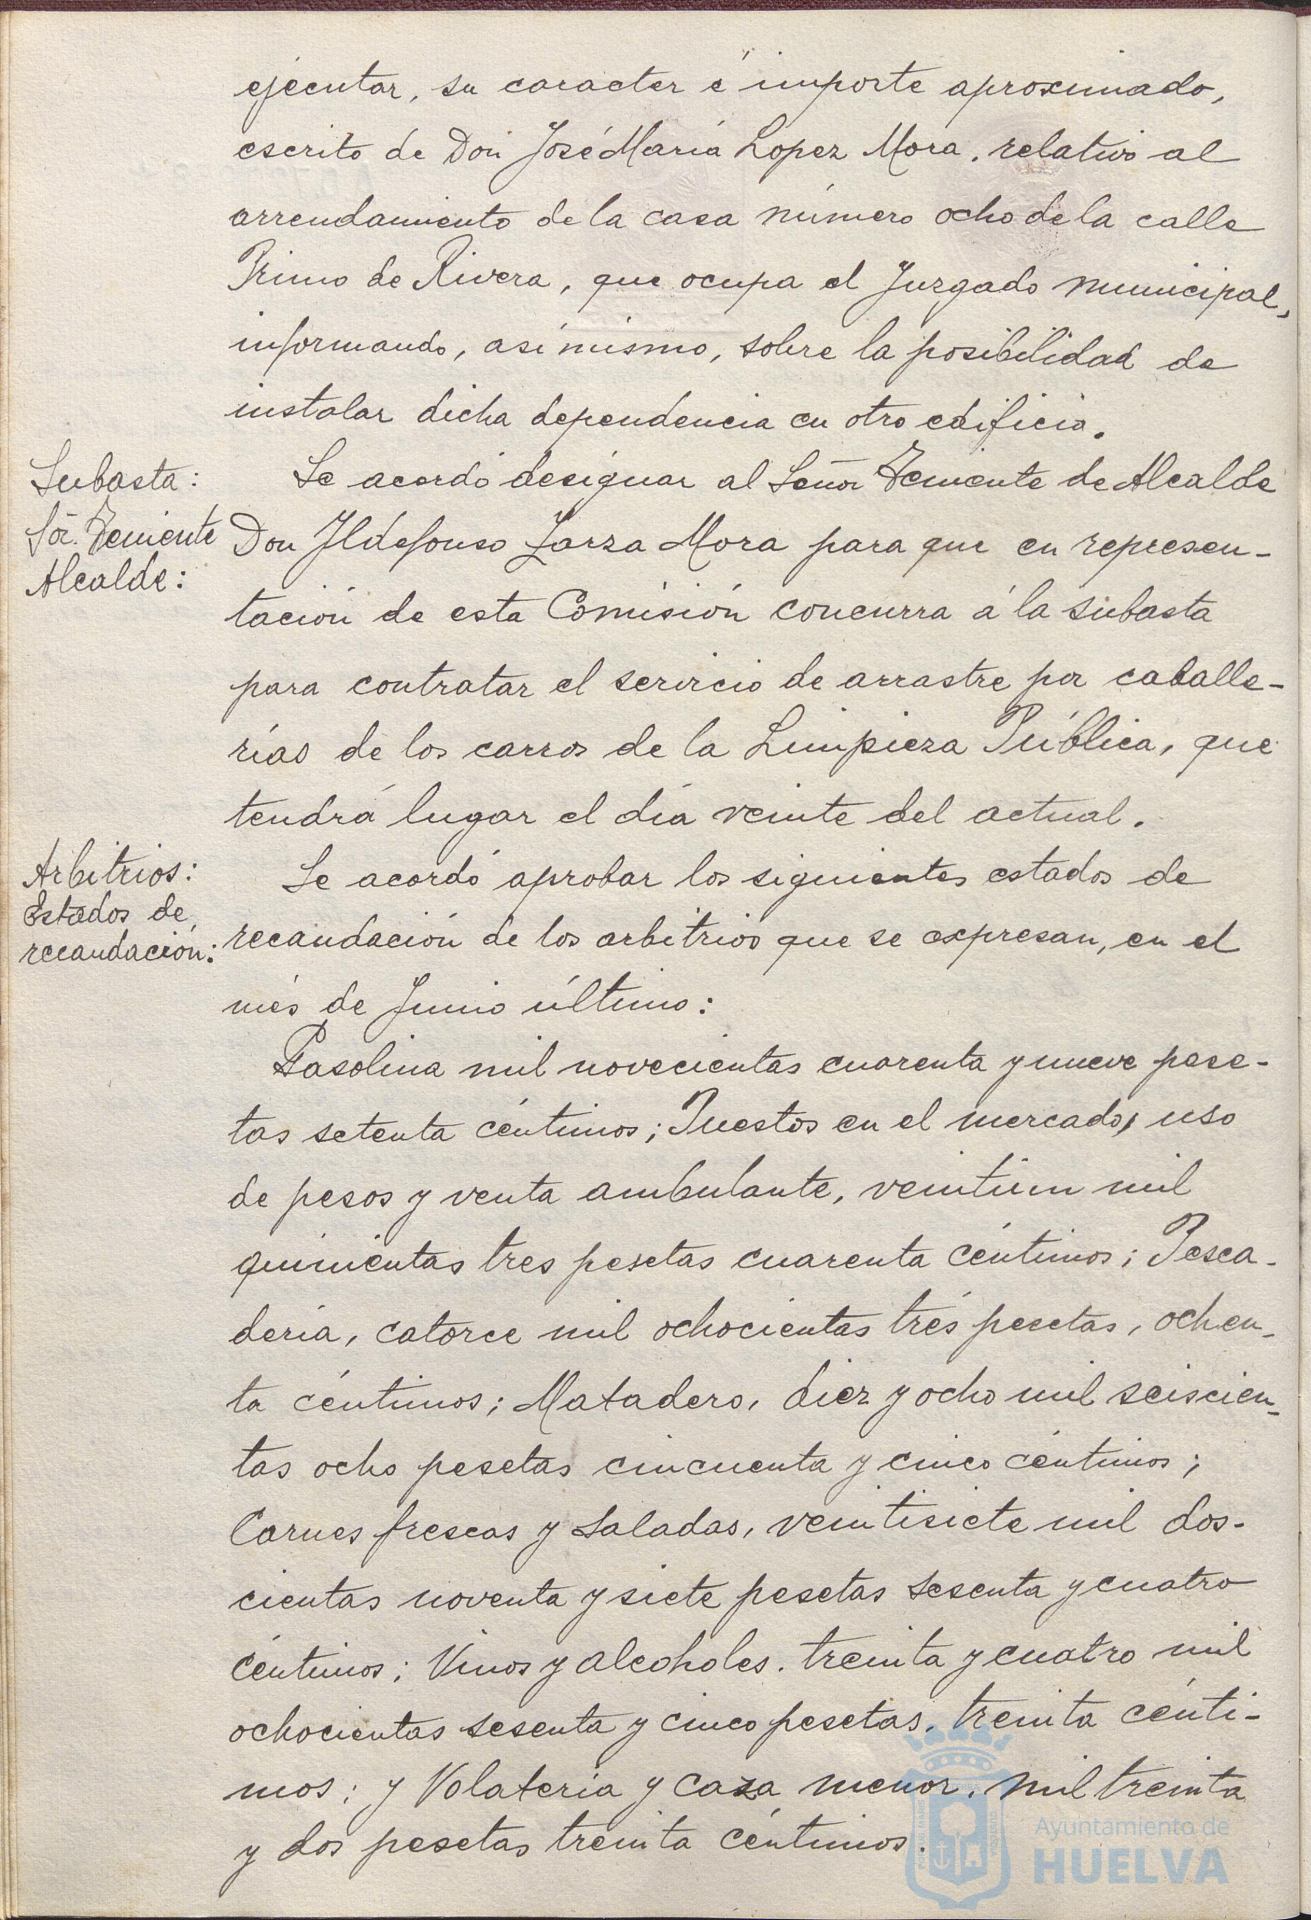 ejecutar, su caracter é importe aproximado,
escrito de Don José María Lopez Mora, relativo al
arrendamiento de la casa número ocho de la calle
Primo de Rivera, que ocupa el Juzgado municipal,
informando, asímismo, sobre la posibilidad de
instalar dicha dependencia en otro edificio.
Subasta:
Sr. Teniente
Alcalde:
Se acordó designar al Señor Teniente de Alcalde
Don Ildefonso Zarza Mora para que en represen-
tación de esta Comisión concurra á la subasta
para contratar el servicio de arrastre por caballe-
rías de los carros de la Limpieza Pública, que
tendrá lugar el día veinte del actual.
Arbitrios:
Estados de
recaudación:
Se acordó aprobar los siguientes estados de
recaudación de los arbitrios que se expresan, en el
més de Junio último:
Gasolina mil novecientas cuarenta y nueve pese-
tas setenta céntimos; Puestos en el mercado, uso
de pesos y venta ambulante, veintiun mil
quinientas tres pesetas cuarenta céntimos; Pesca-
dería, catorce mil ochocientas trés pesetas, ochen-
ta céntimos; Matadero, diez y ocho mil seiscien-
tas ocho pesetas cincuenta y cinco céntimos;
Carnes frescas y saladas, veintisiete mil dos-
cientas noventa y siete pesetas sesenta y cuatro
céntimos; Vinos y alcoholes, treinta y cuatro mil
ochocientas sesenta y cinco pesetas, treinta cénti-
mos; y Volatería y caza menor, mil treinta
y dos pesetas treinta céntimos.
Ayuntamiento de
HUELVA